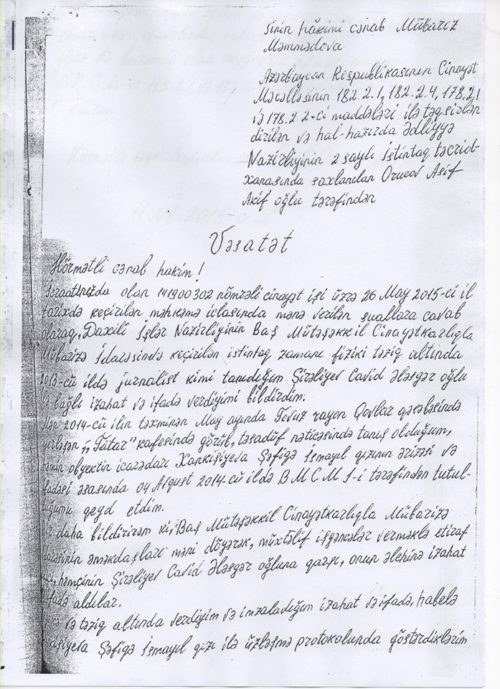 sinin hakimi cənab Mübariz
Məmmədova
Azərbaycan Respublikasının Cinayət
Məcəlləsinin 182.2.1, 182.2.4, 178.2.1
və 178.2.2-ci maddələri ilə təqsirlən
dirilən və hal-hazırda Ədliyyə
Nazirliyinin 2 saylı İstintaq təcrid-
xanasında saxlanılan Orucov Asif
Akif oğlu tərəfindən
Vəsatət
Hörmətli cənab hakim!
İcraatınızda olan 141900302 nömrəli cinayət işi üzrə 26 May 2015-ci il
tarixdə keçirilən məhkəmə iclasında mənə verilən suallara cavab
olaraq, Daxili İşlər Nazirliyinin Baş Mütəşəkkil Cinayətkarlıqla
Mübarizə İdarəsində keçirilən istintaq zamanı fiziki təzyiq altında
2013-cü ildə jurnalist kimi tanıdığım Şirəliyev Cavid Ələsgər oğlu
ilə bağlı izahat və ifadə verdiyimi bildirdim.
2014-cü ilin təxminən May ayında Tovuz rayon Qovlar qəsəbəsində
yerləşən, "Tatar" kafesində görüb, təsadüf nəticəsində tanış olduğum,
obyektin icarədarı Xankişiyeva Şəfiqə İsmayıl qızının ərizəsi və
ifadəsi əsasında 04 Avqust 2014-cü ildə B M C M İ-i tərəfindən tutul-
duğumu qeyd etdim.
daha bildirirəm ki, Baş Mütəşəkkil Cinayətkarlıqla Mübarizə
İdarəsinin əməkdaşları məni döyərək, müxtəlif işgəncələr verməklə etiraf
həmçinin Şirəliyev Cavid Ələsgər oğluna qarşı, onun əleyhinə izahat
ifadə aldılar.
və təzyiq altında verdiyim və imzaladığım izahat və ifadə, habelə
Şəfiqə İsmayıl qızı ilə üzləşmə protokolunda göstərdiklərim